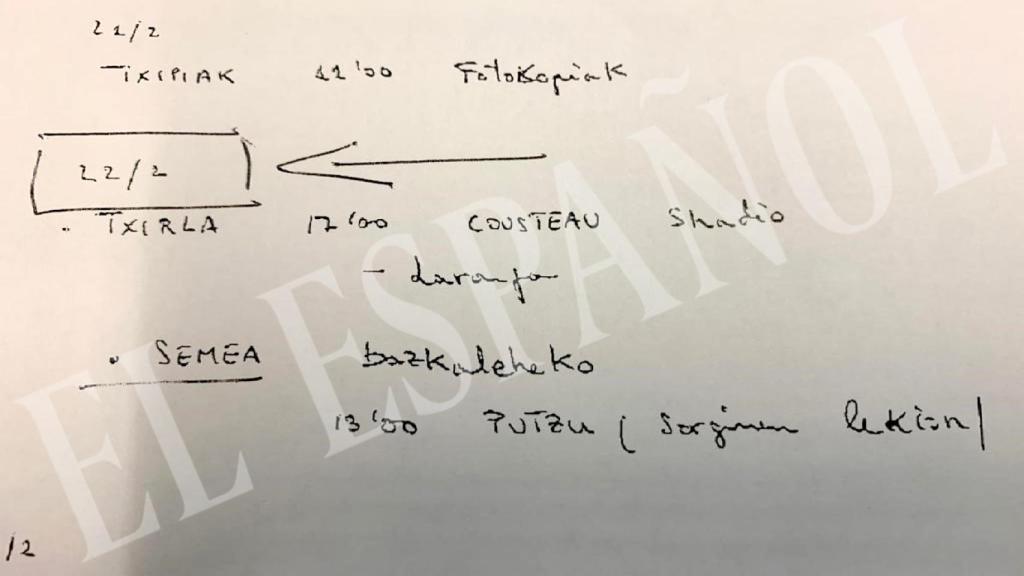 21/2
TXIPIAK 11'00 Fotokopiak
22/2
• TXIRLA 17'00 COUSTEAU Stadio
- Laranja
• SEMEA bazkaleheko
13'00 PUTZU (Sorginen lekian)
/2
EL ESPAÑOL